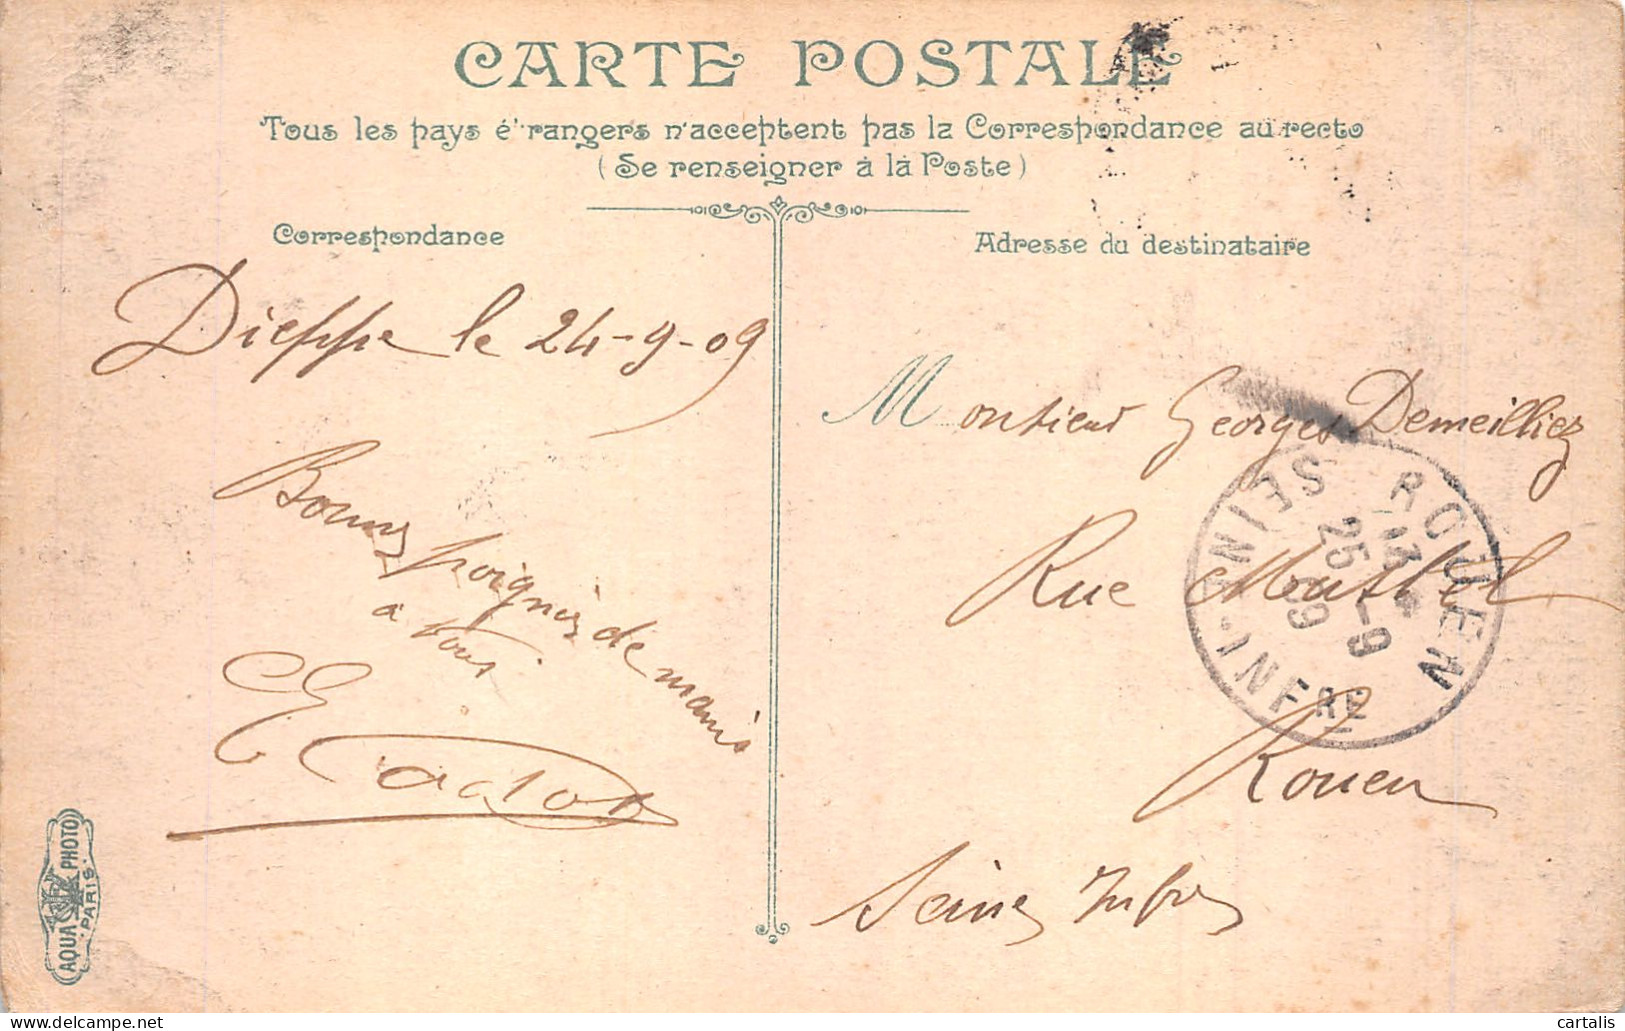 CARTE POSTALE
Tous les pays é'rangers n'acceptent pas la Correspondance au recto
(Se renseigner à la Poste)
Correspondance
Dieppe le 24-9-09
Bonnes poignées de mains
à tous
Adresse du destinataire
Monsieur Georges Demeilliez
Rue
Rouen
Seine Infre
ROUEN
13
25 -9
09
SEINE INFRE
AQUA PHOTO
PARIS
cartalis